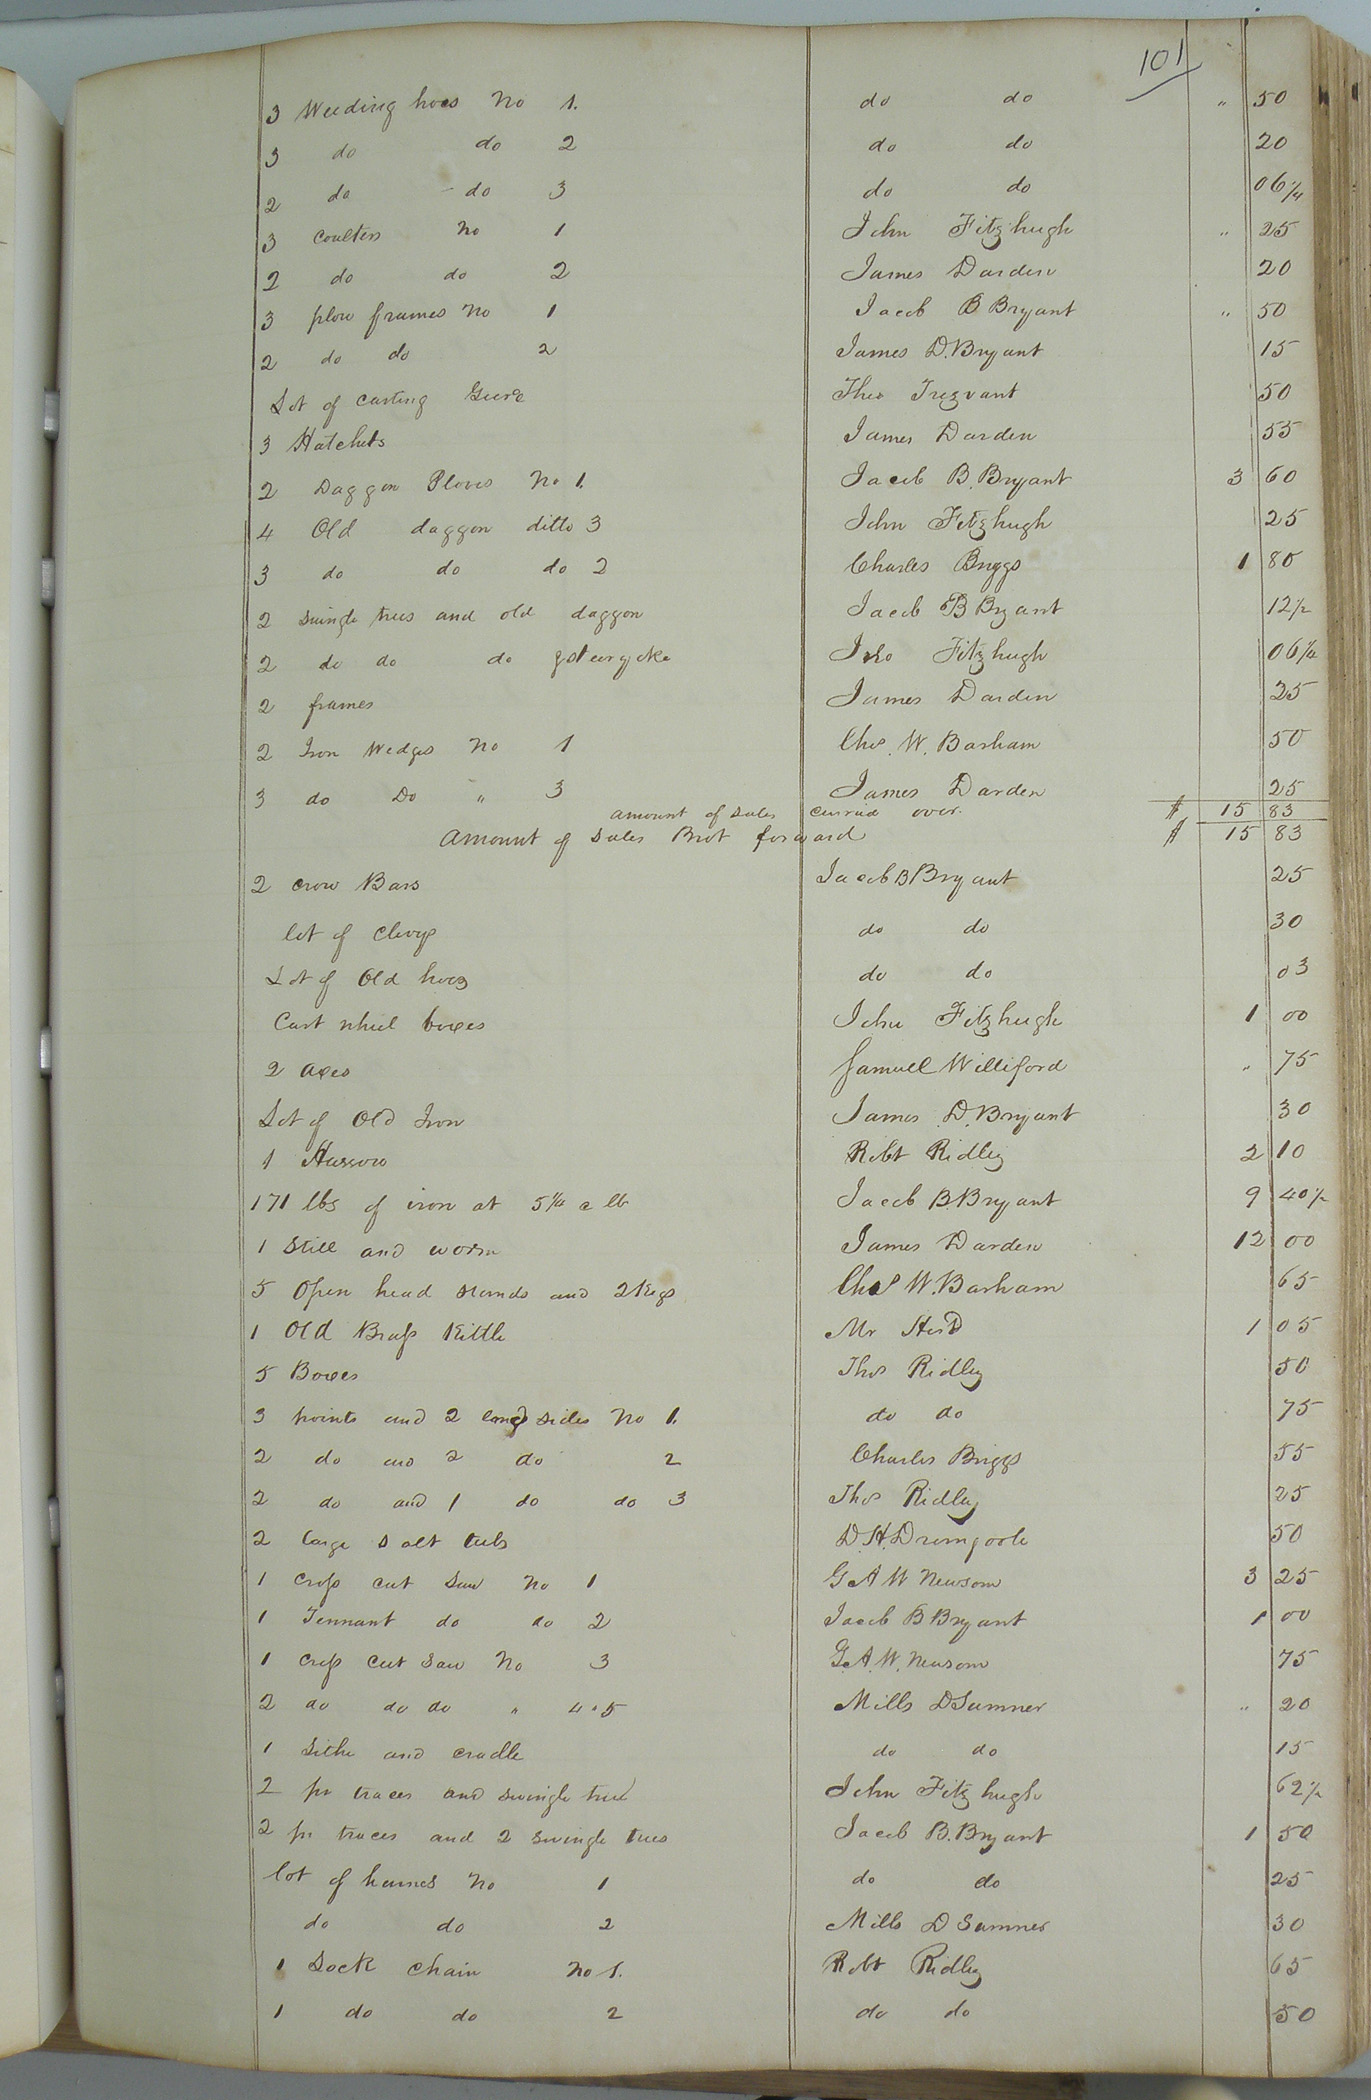 101
3 Weeding hoes No 1. do do " 50
3 do do 2 do do 20
2 do - do 3 do do 06 1/4
3 Coulters No 1 John Fitzhugh " 25
2 do do 2 James Darden 20
3 plow frames No 1 Jacob B Bryant " 50
2 do do 2 James D. Bryant 15
Lot of Carting Geere Theo Trezvant 50
3 Hatchets James Darden 55
2 Daggon Plows No 1. Jacob B. Bryant 3 60
4 Old daggon ditto 3 John Fitzhugh 25
3 do do do 2 Charles Briggs 1 80
2 Swingle trees and old daggon Jacob B Bryant 12 1/2
2 do do do Jno Fitzhugh 06 1/4
2 frames James Darden 25
2 Iron Wedges No 1 Chs. W. Barham 50
3 do Do " 3 James Darden 25
amount of Sales Carried over. $ 15 83
Amount of Sales Brot forward $ 15 83
2 Crow Bars Jacob B Bryant 25
lot of Clevys do do 30
Lot of Old hoes do do 03
Cart wheel boxes John Fitzhugh 1 00
2 axes Samuel Williford " 75
Lot of Old Iron James D. Bryant 30
1 Harrow Robt Ridley 2 10
171 lbs of iron at 5 1/4 a lb Jacob B. Bryant 9 40 1/2
1 Still and worm James Darden 12 00
5 Open head stands and 2 Kegs Chas W. Barham 65
1 Old Brass Kittle Mr 1 05
5 Boxes Thos Ridley 50
3 points and 2 land sides No 1. do do 75
2 do and 2 do 2 Charles Briggs 55
2 do and 1 do do 3 Thos Ridley 25
2 large Salt tubs D. H. Dromgoole 50
1 Cross cut Saw No 1 G A W Newsom 3 25
1 Tennant do do 2 Jacob B Bryant 1 00
1 Cross Cut Saw No 3 G. A. W. Newsom 75
2 do do do " 4 " 5 Mills D Sumner " 20
1 Sithe and cradle do do 15
2 pr traces and swingle tree John Fitzhugh 62 1/2
2 pr traces and 2 Swingle trees Jacob B. Bryant 1 50
lot of hames No 1 do do 25
do do 2 Mills D Sumner 30
1 Lock Chain No 1. Robt Ridley 65
1 do do 2 do do 50